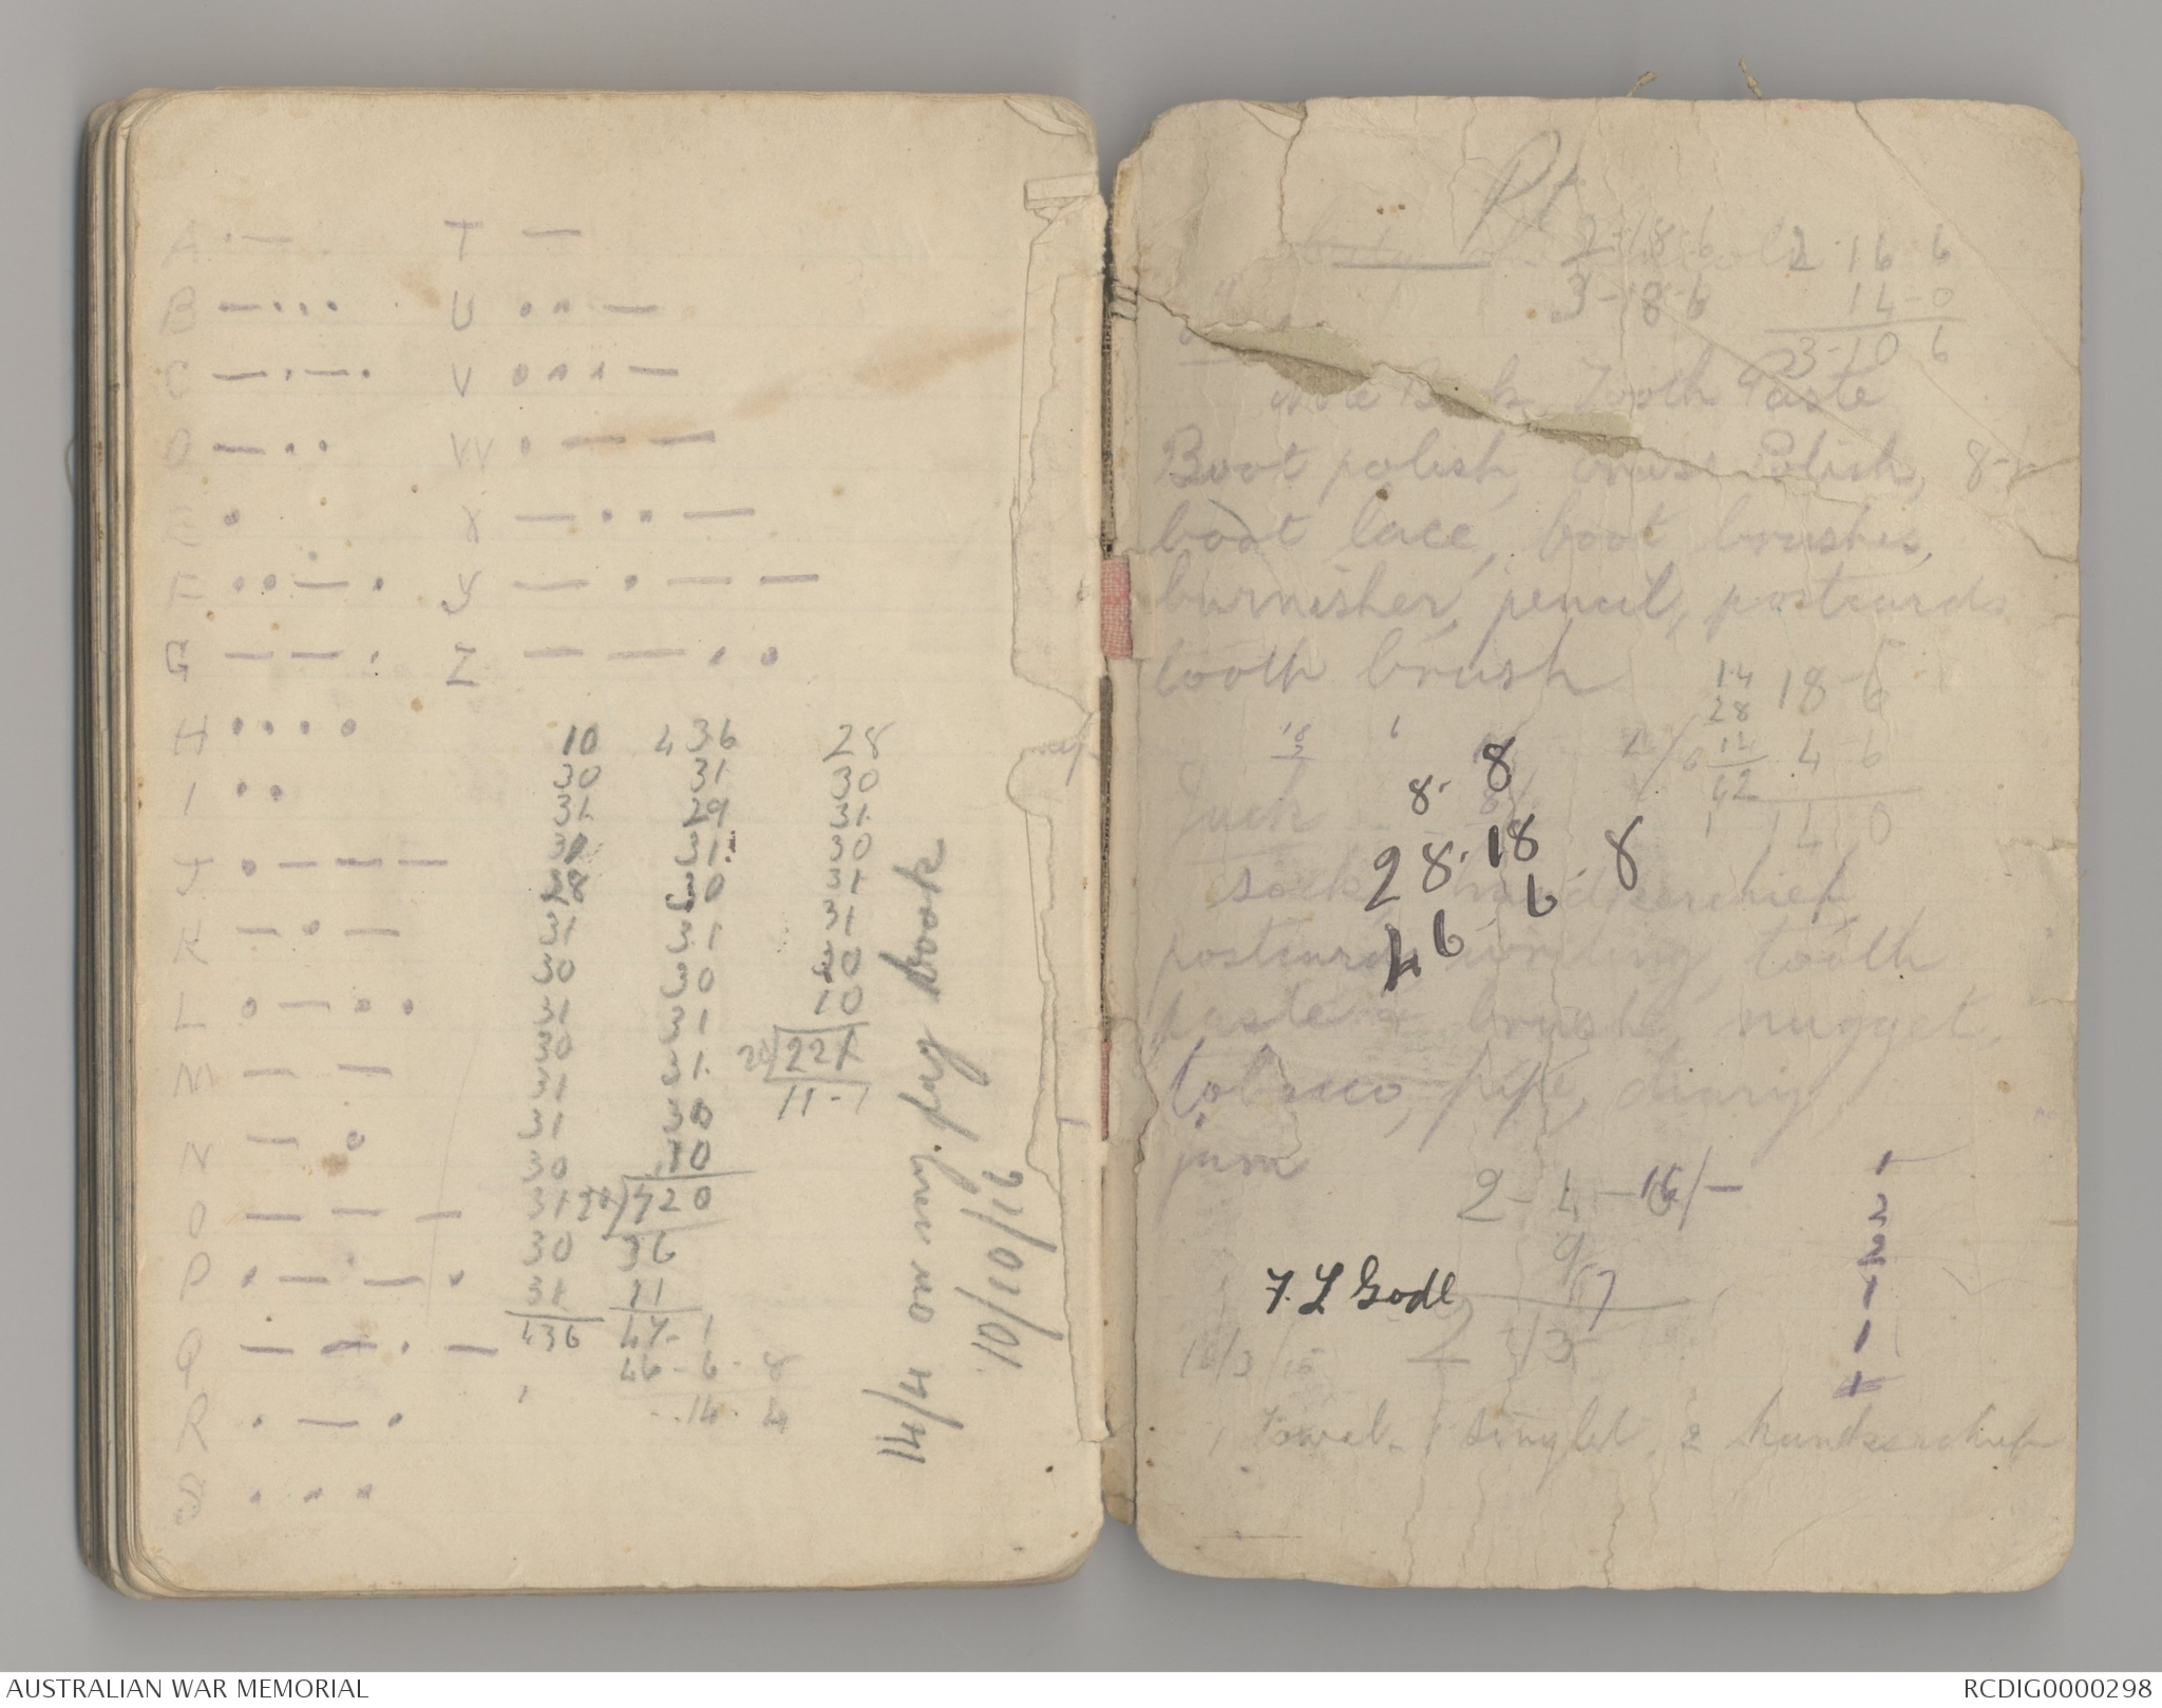 A · — T —
B — · · · U · · —
C — · — · V · · · —
D — · · W · — —
E · X — · · —
F · · — · Y — · — —
G — — · Z — — · ·
H · · · ·
I · ·
J · — — —
K — · —
L · — · ·
M — —
N — ·
O — — —
P · — — ·
Q — — · —
R · — ·
S · · ·
10
30
31
31
28
31
30
31
30
31
31
30
31
30
31
436
436
31
29
31
30
31
30
31
31
30
10
720
36
21
47-1
46-6-8
14-4
28
30
31
30
31
31
30
10
20 221
11-1
14/4 on my pay book
10/10/16
Pt
2-18-6
3-18-6
2 16 6
14-0
3-10 6
Note Book Tooth Paste
Boot polish, brass Polish,
boot lace, boot brushes,
burnisher, pencil, postcards
tooth brush
14
28
12
18-6
4-6
8
8·
28·18 8
6
46
socks handkerchief
postcards writing tooth
paste & brush, nugget,
tobacco, pipe, diary
jam
2-4-16/-
9/
7
F. L Godl
2 13
16/3/15
1
2
2
1
1
1
1 Towel. 1 singlet. 2 handkerchief
AUSTRALIAN WAR MEMORIAL
RCDIG0000298